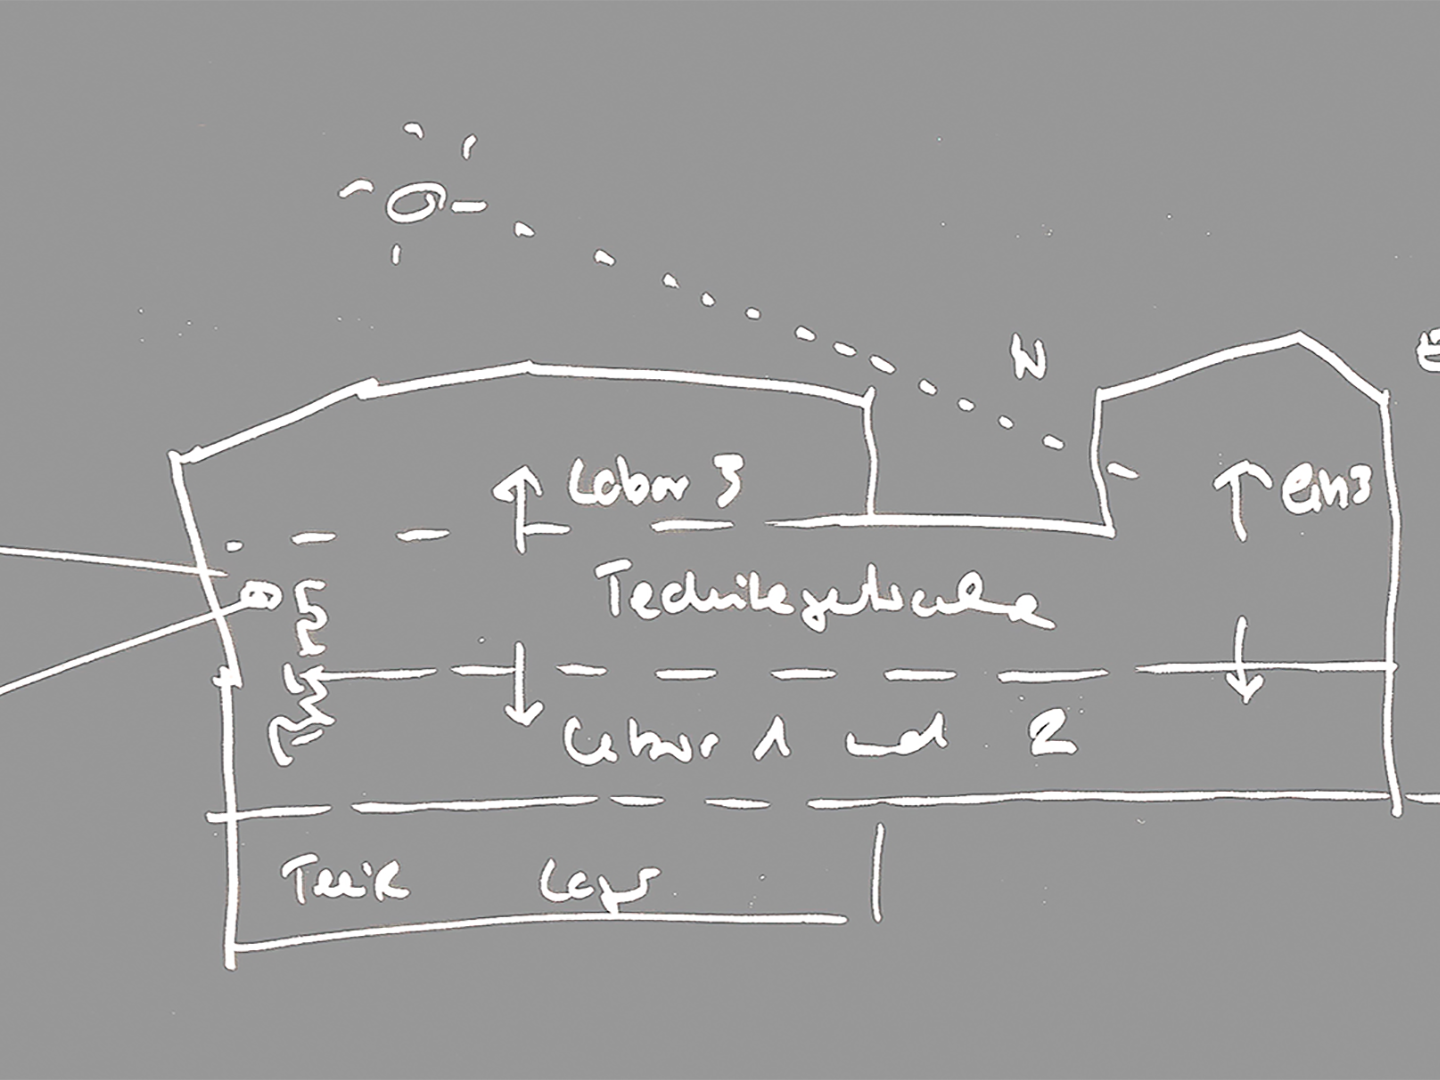 N
Labor 3
ein3
Technikgeschosse
Labor 1 und 2
Technik Lager